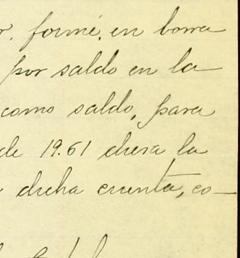 r. formé, en borra
por saldo en la
como saldo, para
de 1961 diera la
dicha cuenta, co-